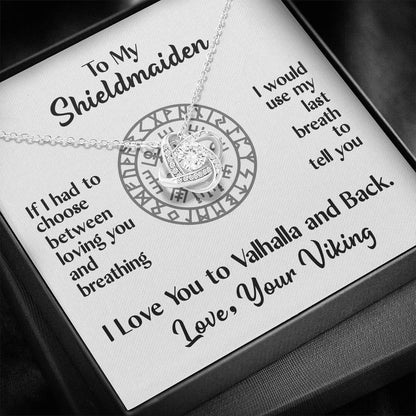 To My
Shieldmaiden
If I had to
choose
between
loving you
and
breathing
I would
use my
last
breath
to
tell you
I Love You to Valhalla and Back.
Love, Your Viking